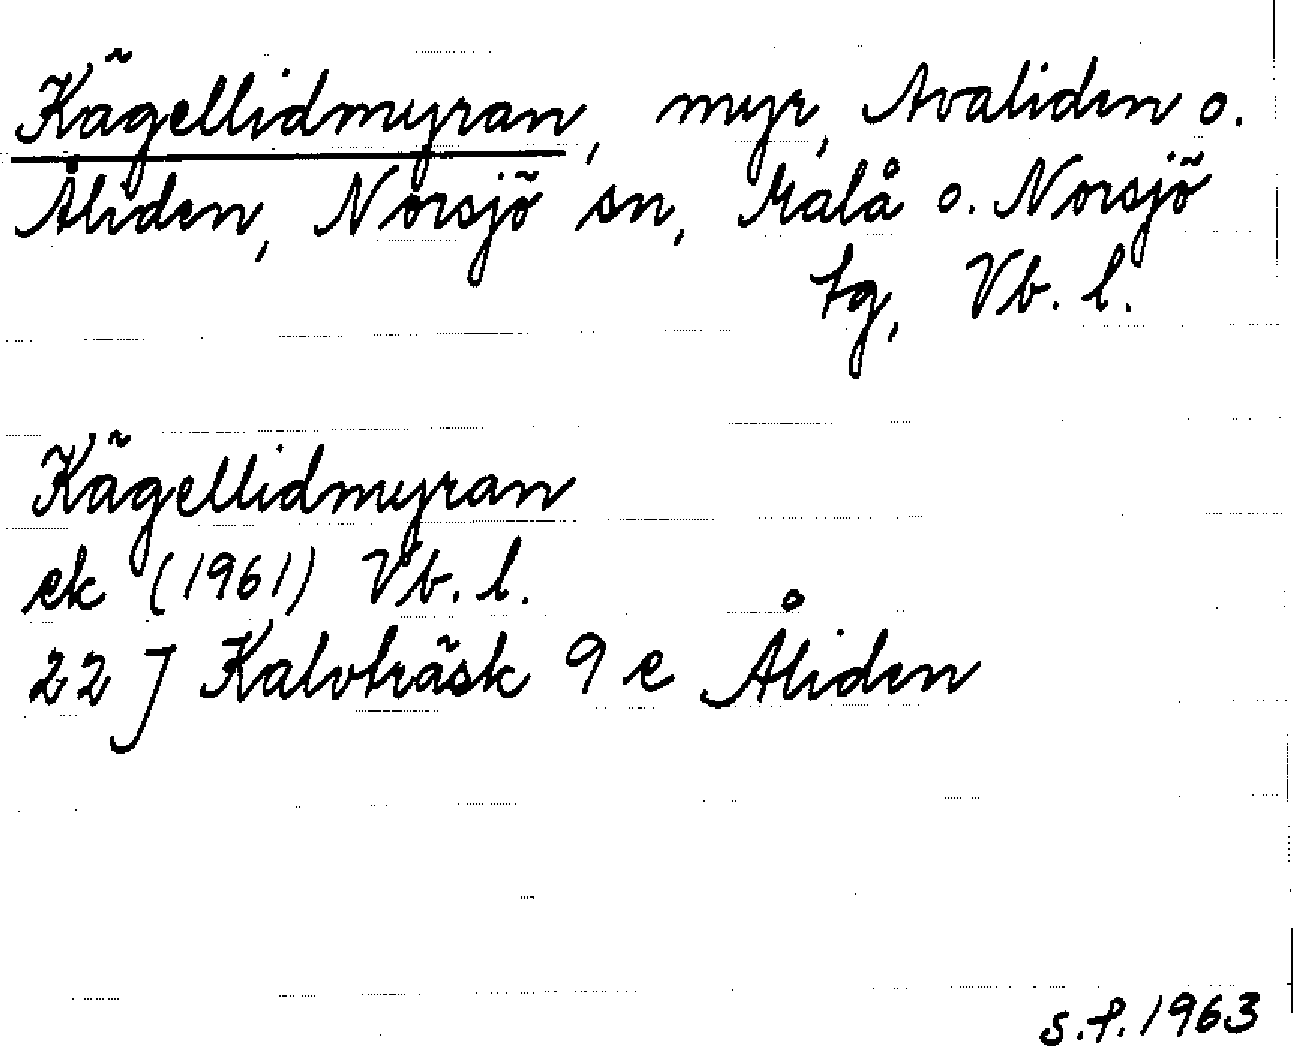 Kägellidmyran, myr, Avaliden o.
Åliden, Norsjö sn, Malå o. Norsjö
tg, Vb. l.
Kägellidmyran
ek (1961) Vb. l.
22 J Kalvträsk 9 e Åliden
s.f. 1963